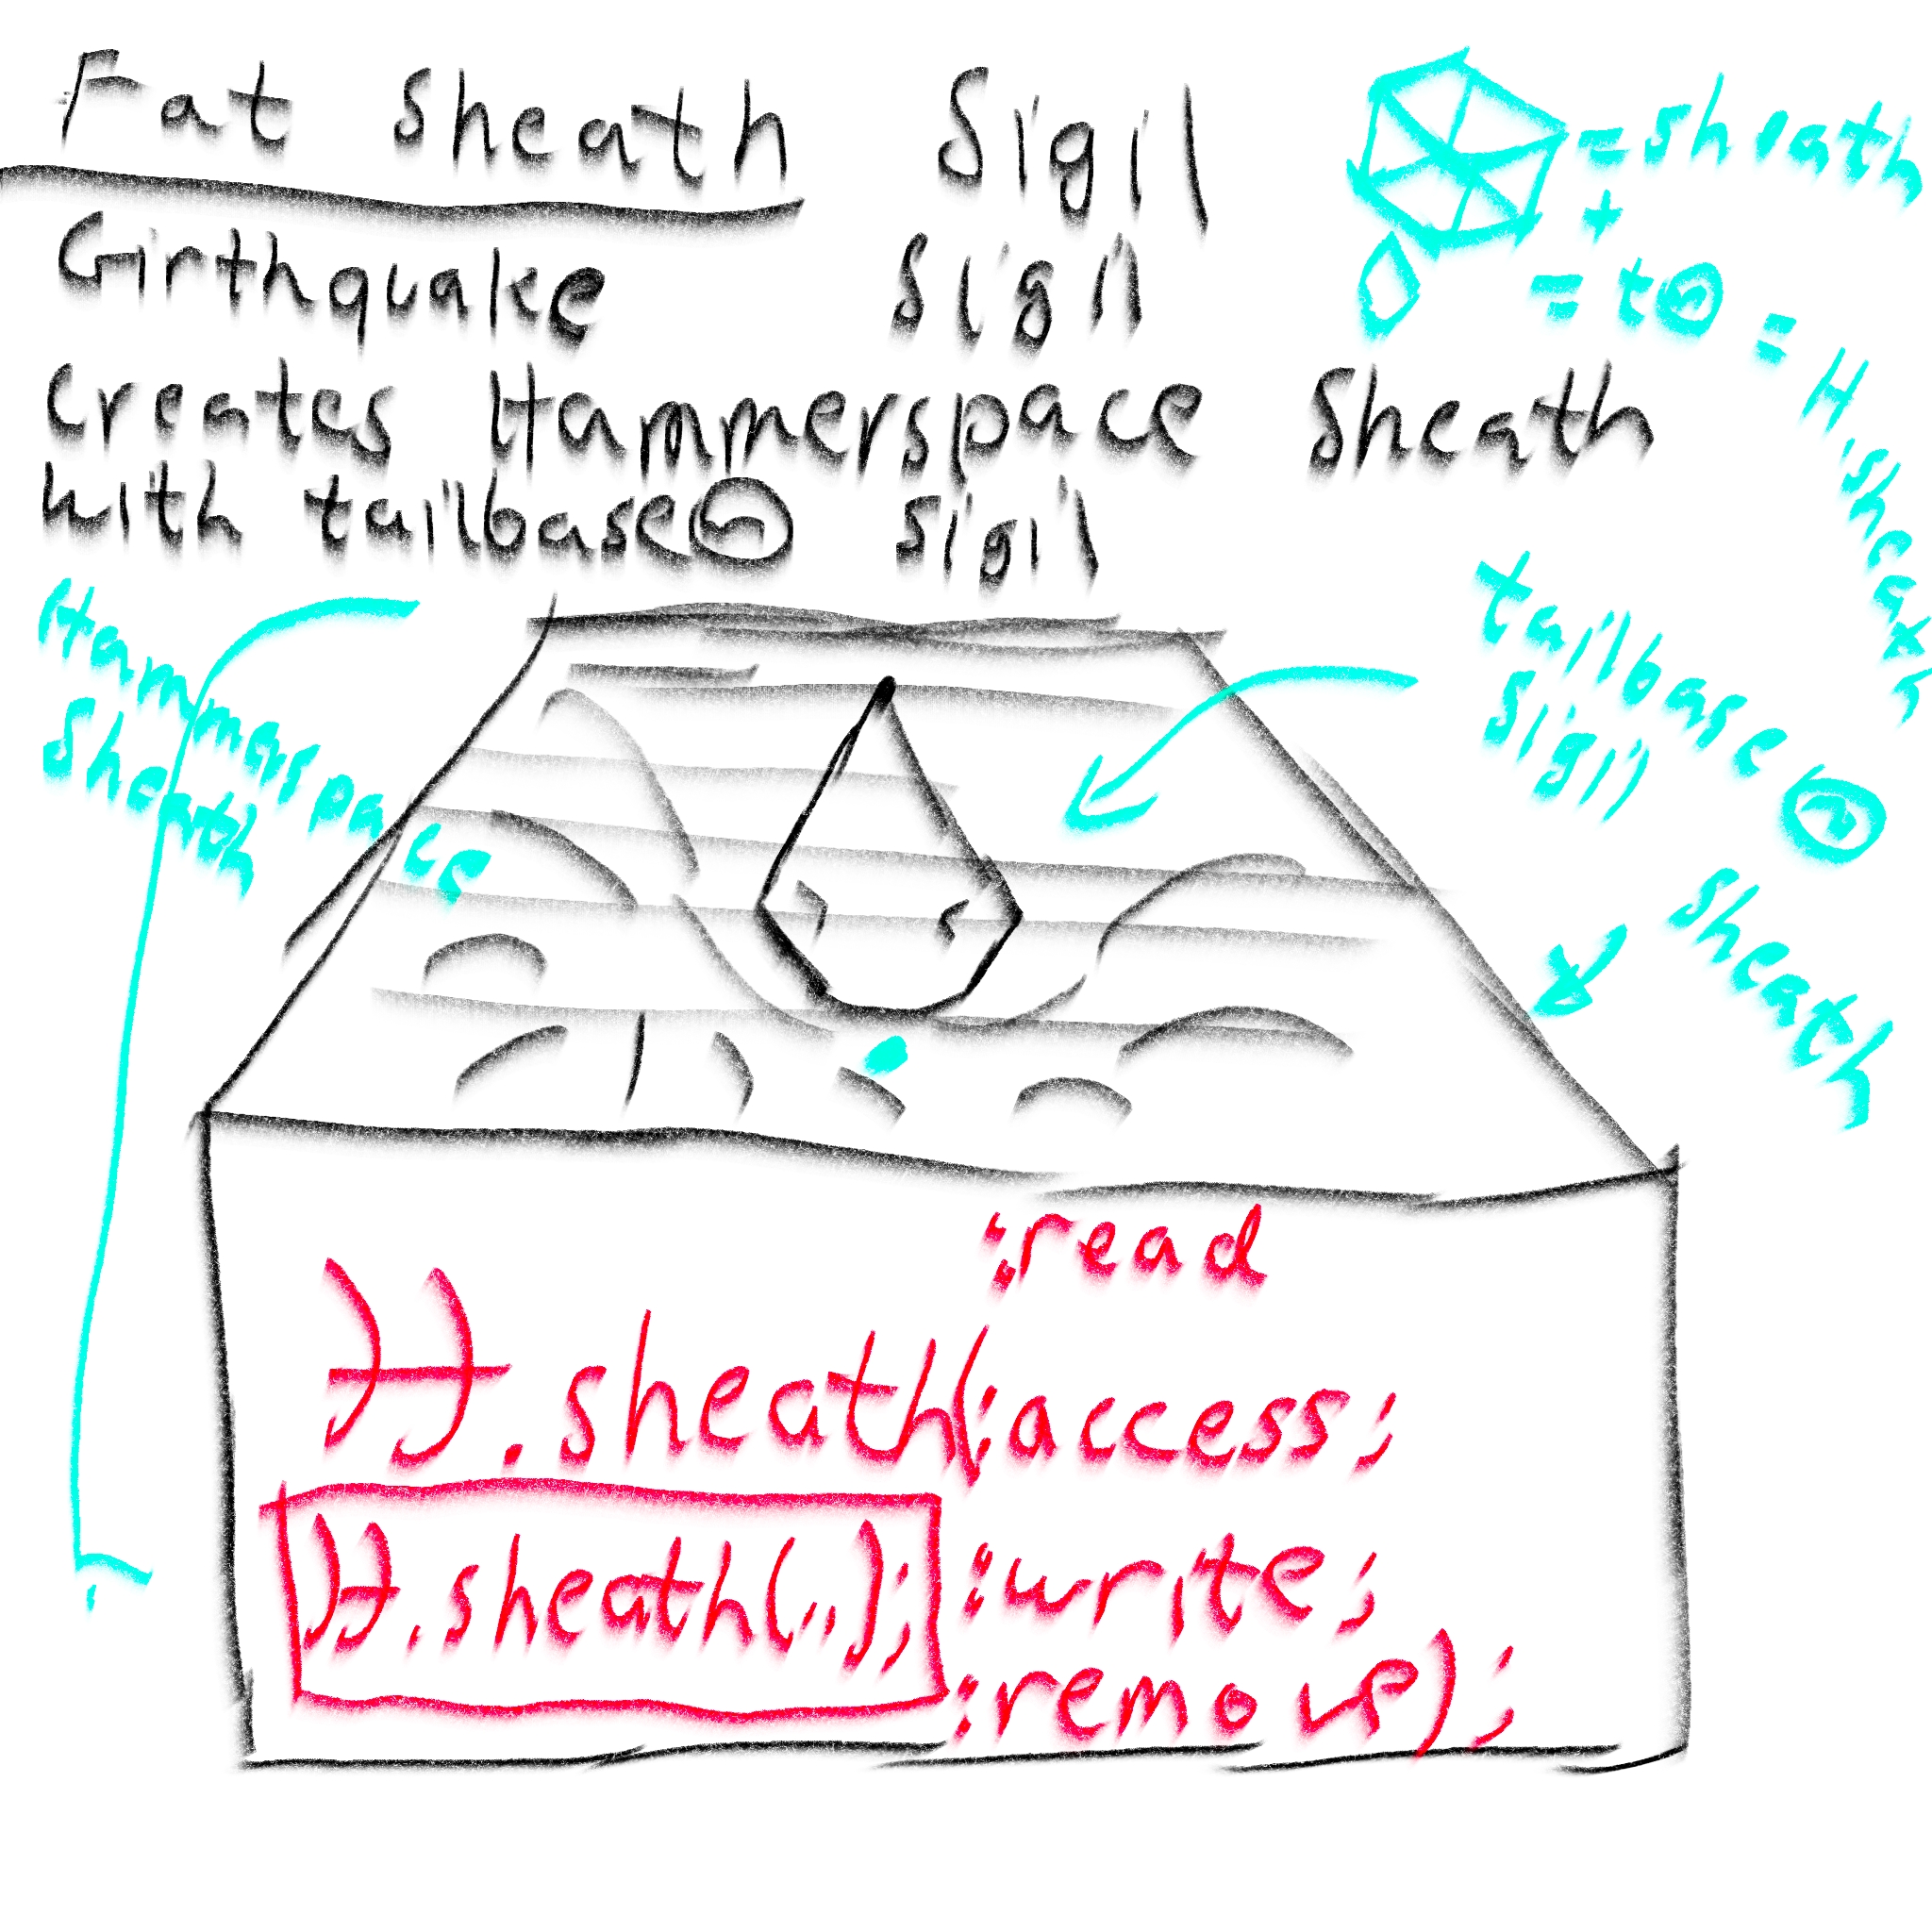 Fat Sheath Sigil
Girthquake Sigil
creates Hammerspace Sheath
with tailbase Sigil
= sheath
+
= t = H.sheath
Hammerspace
Sheath
tailbase
Sigil
Sheath
:read
H.sheath(:access;
H.sheath(..); :write;
:remove);